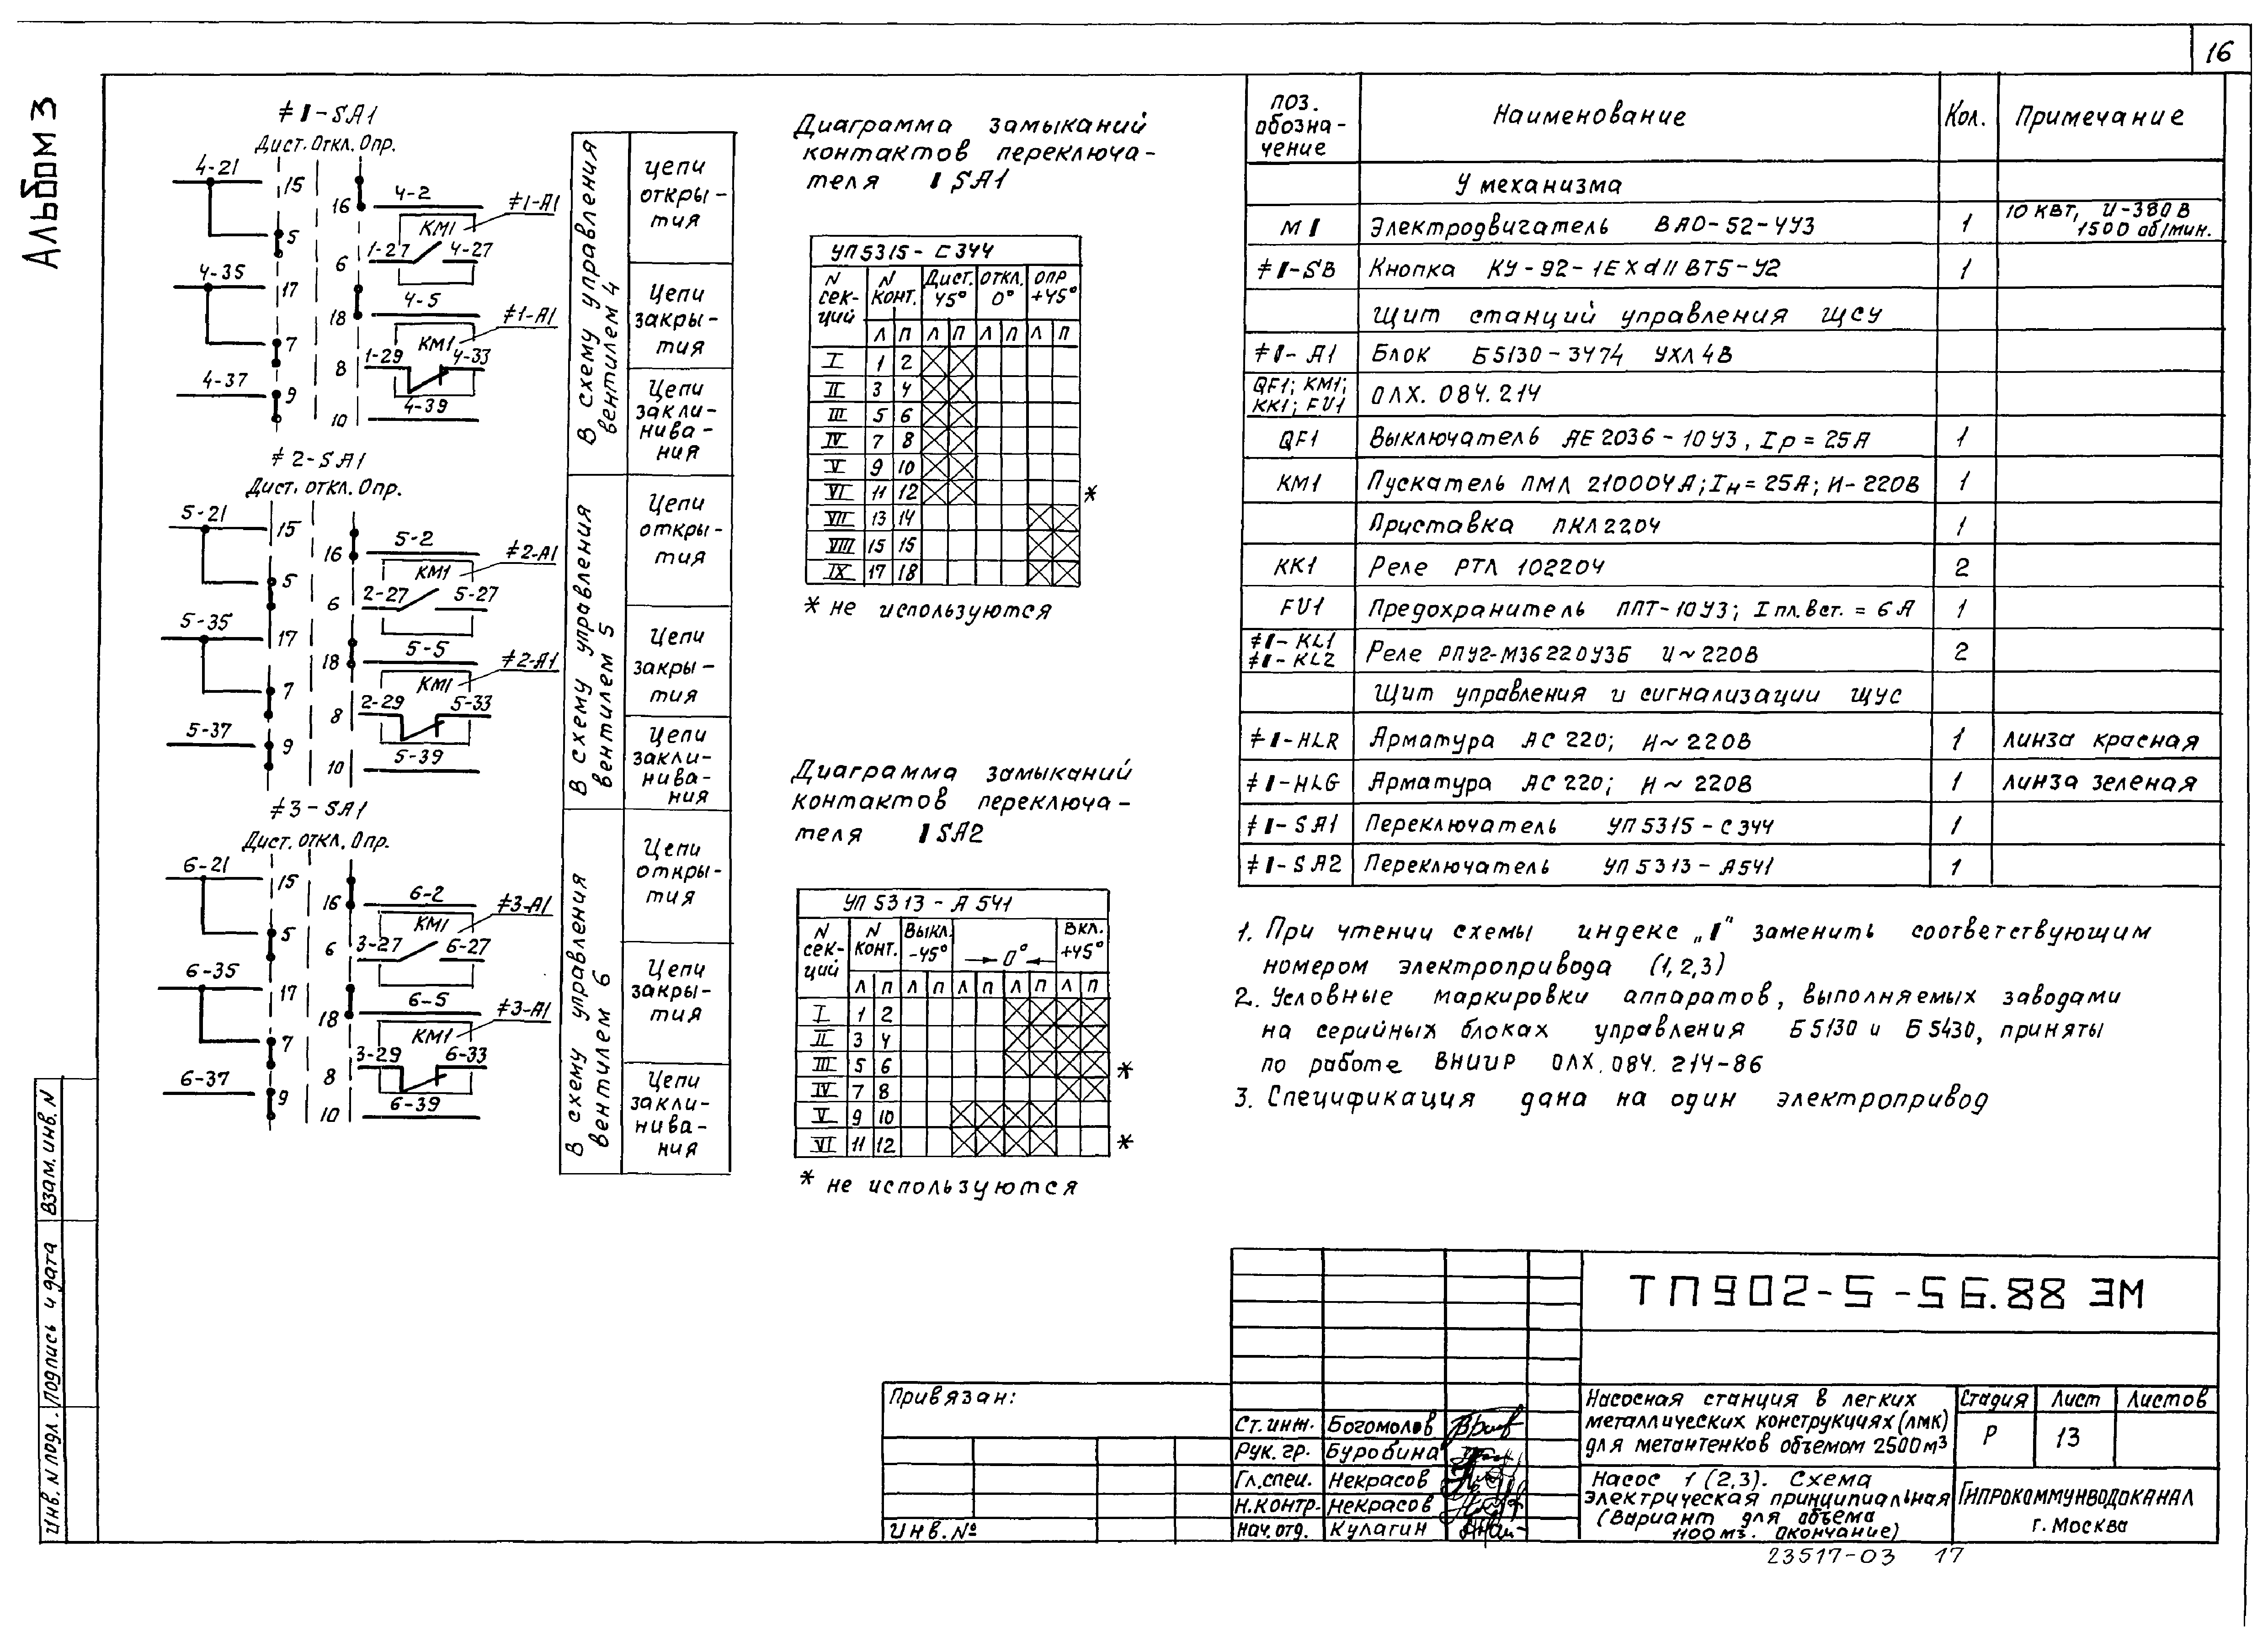 16
Альбом 3
≠I-SA1
Дист. Откл. Опр.
4-21
15
16
4-2
≠1-A1
КМ1
5
6
1-27
4-27
4-35
17
18
4-5
≠1-A1
КМ1
7
8
1-29
4-33
4-37
9
10
4-39
≠2-SA1
Дист. откл. Опр.
5-21
15
16
5-2
≠2-A1
КМ1
5
6
2-27
5-27
5-35
17
18
5-5
≠2-A1
КМ1
7
8
2-29
5-33
5-37
9
10
5-39
≠3-SA1
Дист. откл. Опр.
6-21
15
16
6-2
≠3-A1
КМ1
5
6
3-27
6-27
6-35
17
18
6-5
≠3-A1
КМ1
7
8
3-29
6-33
6-37
9
10
6-39
В схему управления
вентилем 4
цепи
откры-
тия
Цепи
закры-
тия
Цепи
закли-
нива-
ния
В схему управления
вентилем 5
Цепи
откры-
тия
Цепи
закры-
тия
Цепи
закли-
нива-
ния
В схему управления
вентилем 6
Цепи
откры-
тия
Цепи
закры-
тия
Цепи
закли-
нива-
ния
Диаграмма замыканий
контактов переключа-
теля I SA1
УП5315-С344
N сек-ций | N конт. | Дист. 45° | откл. 0° | опр +45°
Л П Л П Л П Л П
I 1 2
II 3 4
III 5 6
IV 7 8
V 9 10
VI 11 12 *
VII 13 14
VIII 15 15
IX 17 18
* не используются
Диаграмма замыканий
контактов переключа-
теля I SA2
УП 5313-А 541
N сек-ций | N конт. | Выкл. -45° | 0° | Вкл. +45°
Л П Л П Л П Л П Л П
I 1 2
II 3 4
III 5 6 *
IV 7 8
V 9 10
VI 11 12 *
* не используются
поз. обозна-чение | Наименование | Кол. | Примечание
У механизма
М I Электродвигатель ВАО-52-4У3 1 10 квт, U-380 В 1500 об/мин.
≠I-SB Кнопка КУ-92-1ЕXdIIВТ5-У2 1
Щит станций управления ЩСУ
≠I-A1 Блок Б5130-3474 УХЛ4В
QF1; KM1; ОЛХ. 084.214
KK1; FU1
QF1 Выключатель АЕ2036-10У3, Iр=25А 1
КМ1 Пускатель ПМЛ 210004А; Iн=25А; И-220В 1
Приставка ПКЛ2204 1
КК1 Реле РТЛ 102204 2
FU1 Предохранитель ППТ-10У3; Iпл.вст.=6А 1
≠I-KL1
≠I-KL2 Реле РПУ2-М36220У3Б U~220В 2
Щит управления и сигнализации ЩУС
≠I-HLR Арматура АС220; И~220В 1 линза красная
≠I-HLG Арматура АС220; И~220В 1 линза зеленая
≠I-SA1 Переключатель УП5315-С344 1
≠I-SA2 Переключатель УП5313-А541 1
1. При чтении схемы индекс „I“ заменить соответствующим
номером электропривода (1,2,3)
2. Условные маркировки аппаратов, выполняемых заводами
на серийных блоках управления Б5130 и Б5430, приняты
по работе ВНИИР ОЛХ.084.214-86
3. Спецификация дана на один электропривод
Взам. инв. N
Подпись и дата
Инв. N подл.
Привязан:
Инв. №
Ст. инж. Богомолов
Рук. гр. Буробина
Гл. спец. Некрасов
Н. контр. Некрасов
Нач. отд. Кулагин
ТП902-5-56.88 ЭМ
Насосная станция в легких
металлических конструкциях (лмк)
для метантенков объемом 2500м3
Стадия Лист Листов
Р 13
Насос 1 (2,3). Схема
электрическая принципиальная
(Вариант для объема
1100 м3. окончание)
ГИПРОКОММУНВОДОКАНАЛ
г. Москва
23517-03 17